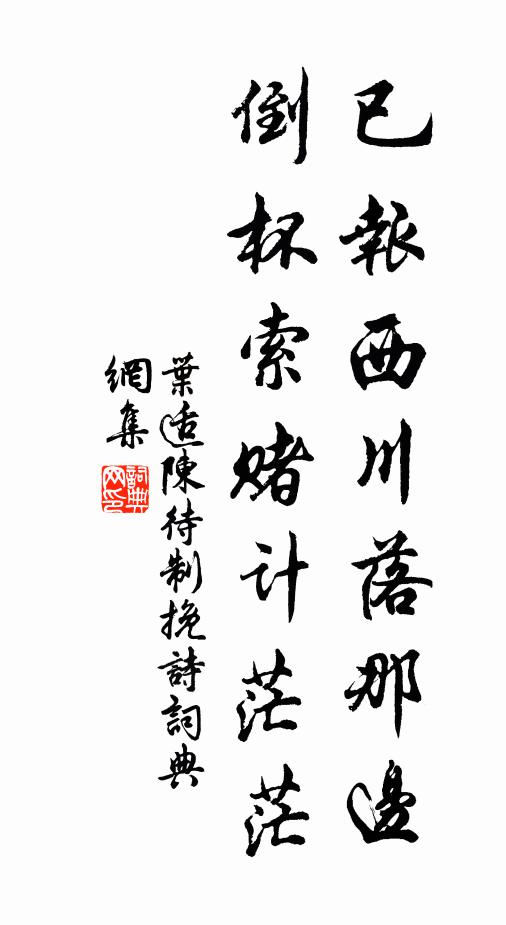 已報西川落那邊
倒杯索賭計茫茫
葉適陳待制挽詩詞典
網集
詞典網印